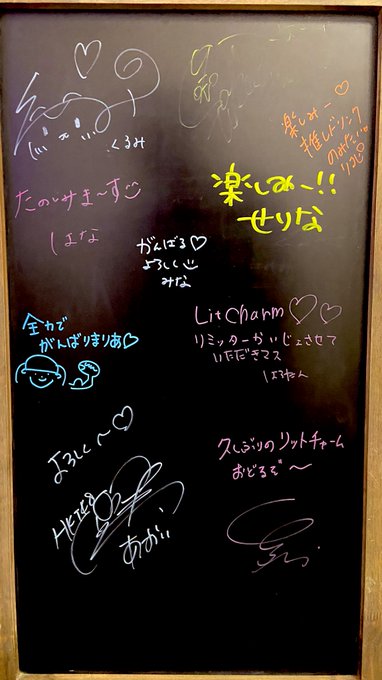 くるみ
楽しみー♡
推しドリンク
のみたい
りこ
たのしみま〜す
はな
楽しみー!!
せりな
がんばる♡
よろしく
みな
全力で
がんばりまりあ♡
Lit charm♡♡
リミッターかいじょさせて
いただきマス
はるたん
よろしく〜♡
あかい
久しぶりのリットチャーム
おどるぞ〜